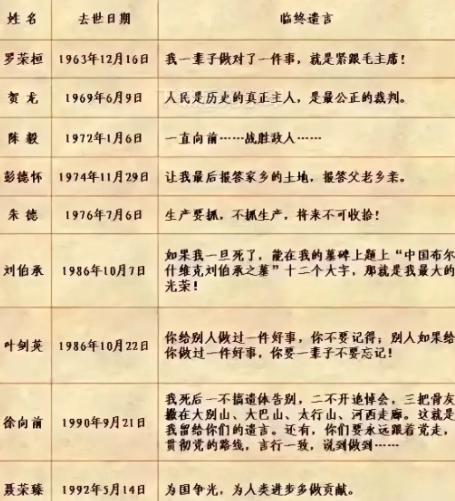 姓名 去世日期 临终遗言
罗荣桓 1963年12月16日 我一辈子做对了一件事，就是紧跟毛主席！
贺龙 1969年6月9日 人民是历史的真正主人，是最公正的裁判。
陈毅 1972年1月6日 一直向前……战胜敌人……
彭德怀 1974年11月29日 让我最后报答家乡的土地，报答父老乡亲。
朱德 1976年7月6日 生产要抓，不抓生产，将来不可收拾！
刘伯承 1986年10月7日
如果我一旦死了，能在我的墓碑上题上“中国布尔
什维克刘伯承之墓”十二个大字，那就是我最大的
光荣！
叶剑英 1986年10月22日
你给别人做过一件好事，你不要记得；别人如果给
你做过一件好事，你要一辈子不要忘记！
徐向前 1990年9月21日
我死后一不搞遗体告别，二不开追悼会，三把骨灰
撒在大别山、大巴山、太行山、河西走廊。这就是
我留给你们的遗言。还有，你们要永远跟着党走，
贯彻党的路线，言行一致，说到做到……
聂荣臻 1992年5月14日 为国争光，为人类进步多做贡献。